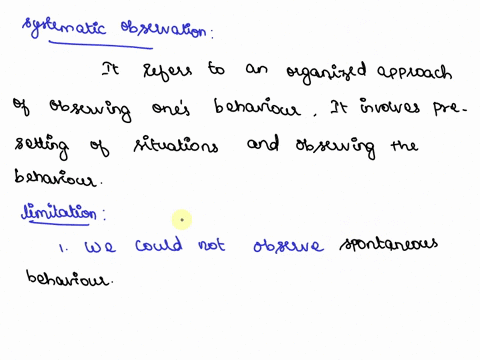 systematic observation:
It refers to an organized approach
of observing one's behaviour. It involves pre-
setting of situations and observing the
behaviour.
limitation:
1. We could not observe spontaneous
behaviour.